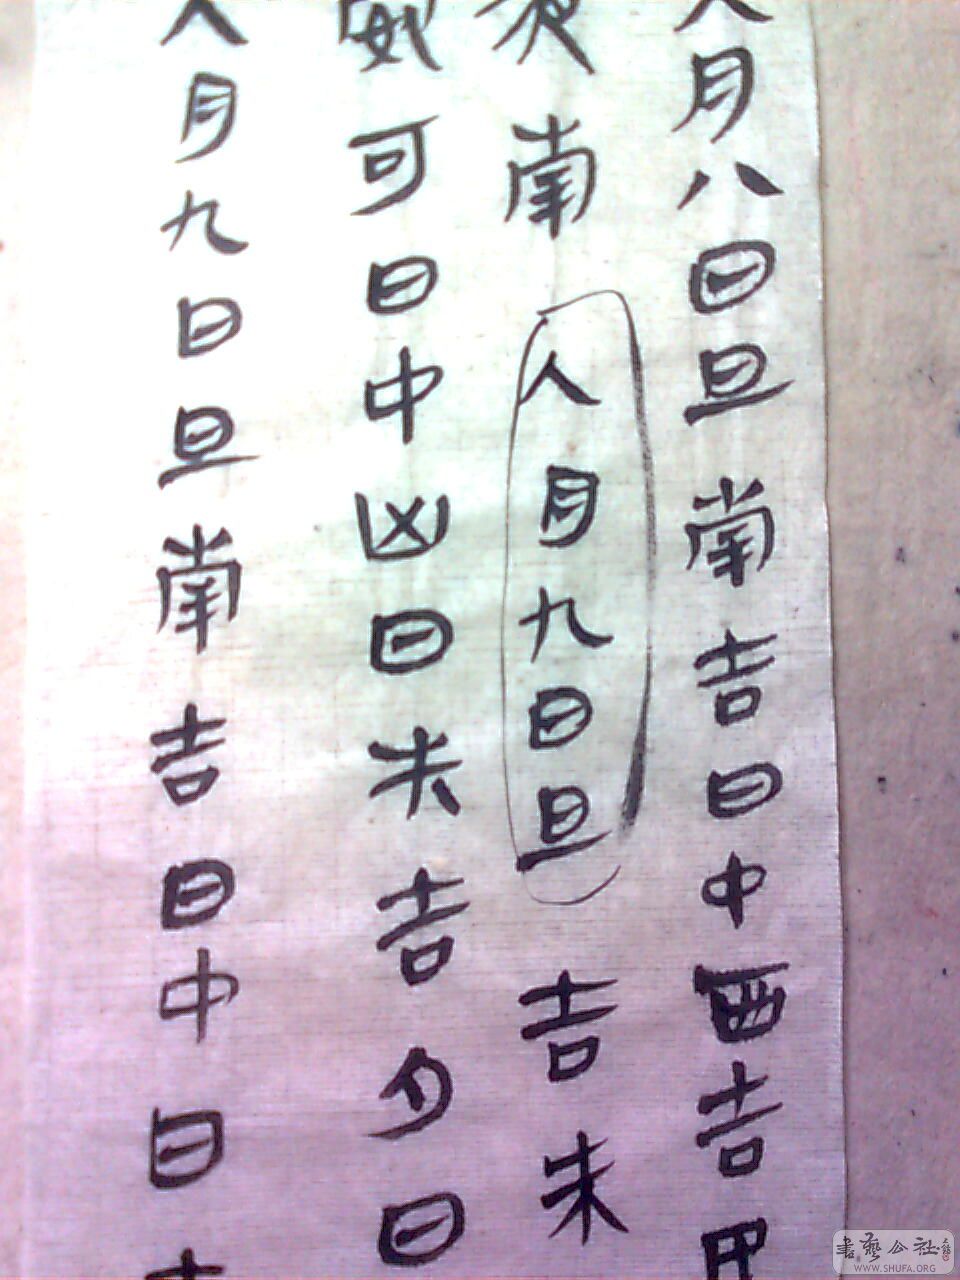 人月八日旦南吉日中西吉甲
夜南人月九日旦吉朱
可日中凶日失吉夕日
人月九日旦南吉日中日
書藝公社
WWW.SHUFA.ORG